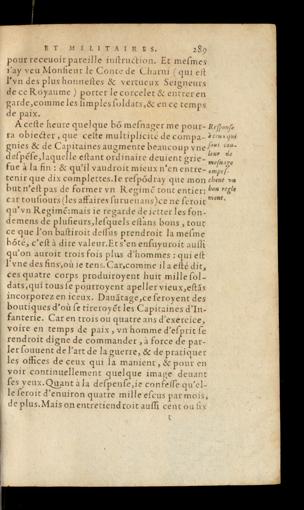 ET MILITAIRES. 289
pour receuoir pareille instruction. Et mesmes
i'ay veu Monsieur le Conte de Charni (qui est
l'vn des plus honnestes & vertueux Seigneurs
de ce Royaume) porter le corcelet & entrer en
garde, comme les simples soldats, & en ce temps
de paix.
A ceste heure quelque bõ mesnager me pour-
ra obiecter, que ceste multiplicité de compa-
gnies & de Capitaines augmente beaucoup vne
despẽse, laquelle estant ordinaire deuient grie-
fue à la fin: & qu'il vaudroit mieux n'en entre-
tenir que dix complettes. Ie respõdray que mon
but n'est pas de former vn Regimẽ tout entier:
car tousiours (les affaires suruenans) ce ne seroit
qu'vn Regimẽ: mais ie regarde de ietter les fon-
demens de plusieurs, lesquels estans bons, tout
ce que l'on bastiroit dessus prendroit la mesme
hõté, c'est à dire valeur. Et s'en ensuyuroit aussi
qu'on auroit trois fois plus d'hommes: qui est
l'vne des fins, où ie tens. Car, comme il a esté dit,
ces quatre corps produiroyent huit mille sol-
dats, qui tous se pourroyent apeller vieux, estãs
incorporez en iceux. Dauãtage, ce seroyent des
boutiques d'où se tireroyẽt les Capitaines d'In-
fanterie. Car en trois ou quatre ans d'exercice,
voire en temps de paix, vn homme d'esprit se
rendroit digne de commander, à force de par-
ler souuent de l'art de la guerre, & de pratiquer
les offices de ceux qui la manient, & pour en
voir continuellement quelque image deuant
ses yeux. Quant à la despense, ie confesse qu'el-
le seroit d'enuiron quatre mille escus par mois,
de plus. Mais on entretiendroit aussi cent ou six
t
Response
à ceux qui
sous cou-
leur de
mesnage
empes-
chent vn
bon regle
ment.